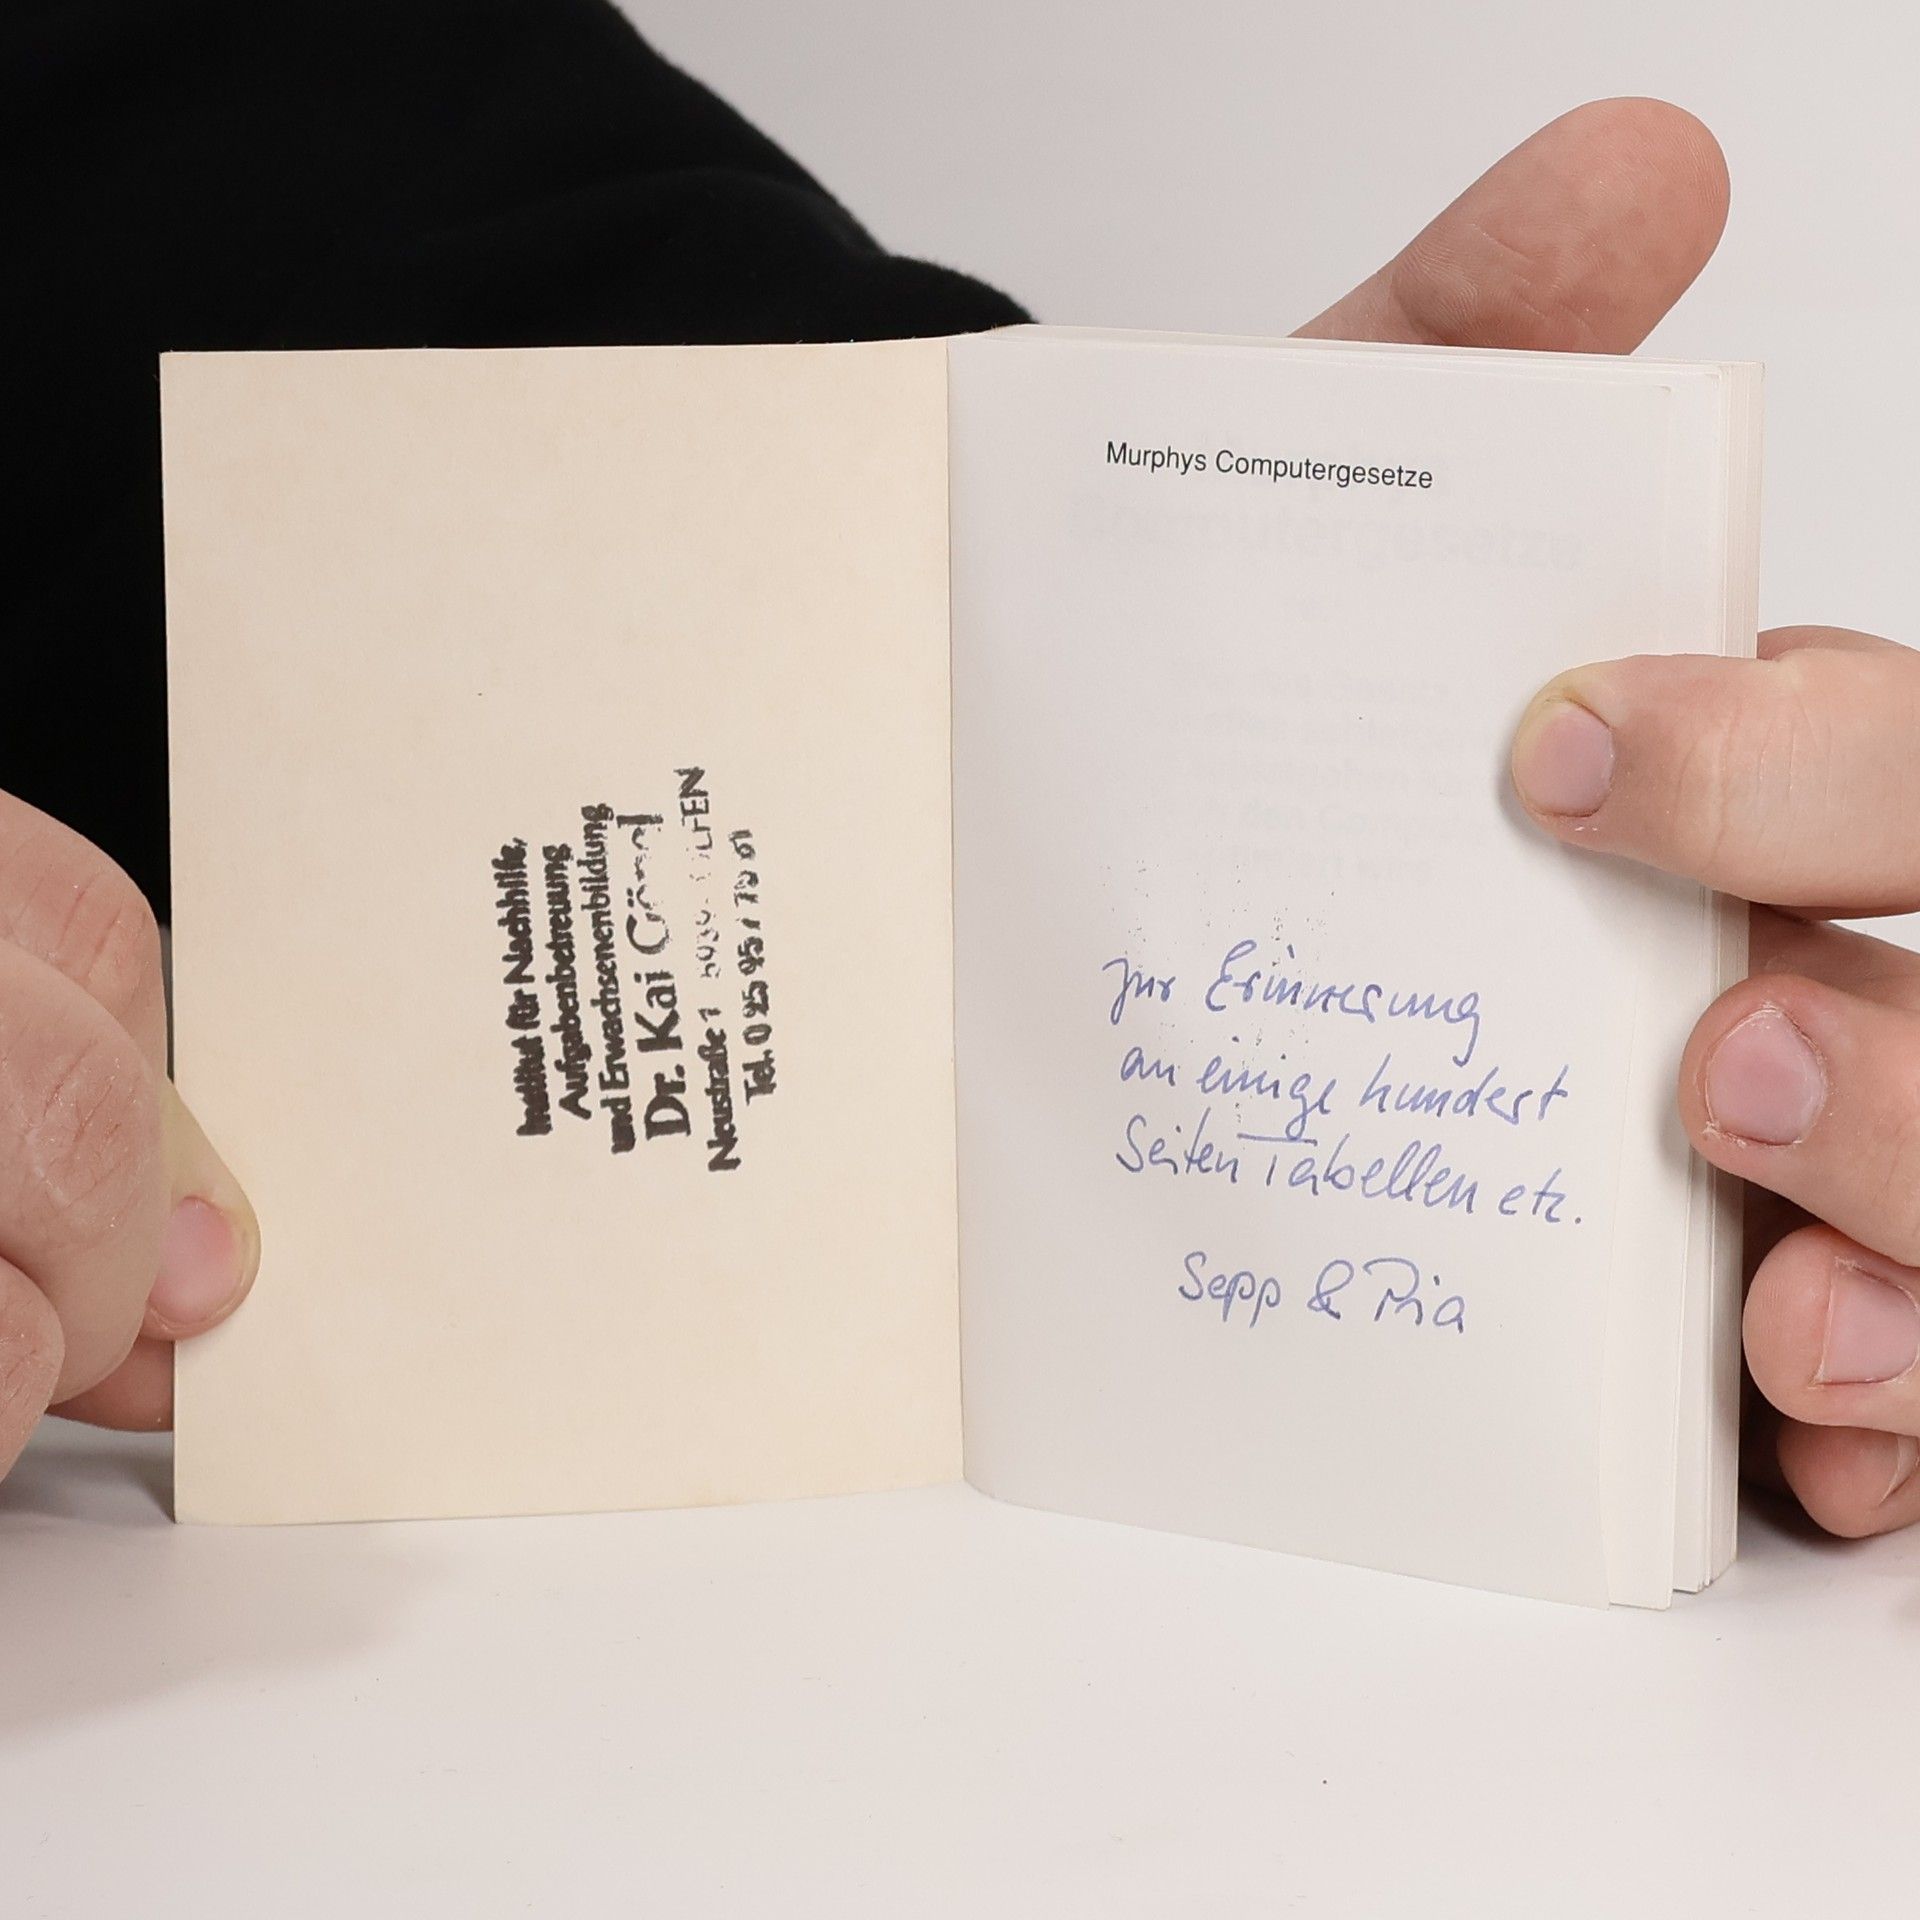 Institut für Nachhilfe,
Aufgabenbetreuung
und Erwachsenenbildung
Dr. Kai
Neustraße 1
Tel. 0 25 95 /
Murphys Computergesetze
zur Erinnerung
an einige hundert
Seiten Tabellen etc.
Sepp & Pia